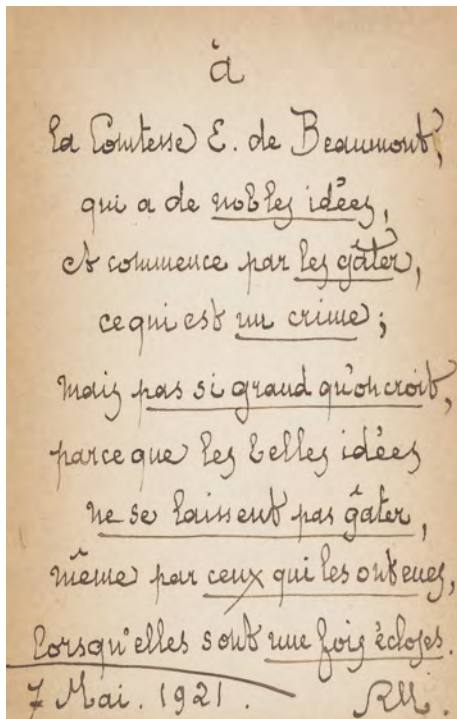 à
la Comtesse E. de Beaumont,
qui a de nobles idées,
et commence par les gâter,
ce qui est un crime ;
mais pas si grand qu'on croit,
parce que les belles idées
ne se laissent pas gâter,
même par ceux qui les ont eues,
lorsqu'elles sont une fois écloses.
7 Mai. 1921. RM.